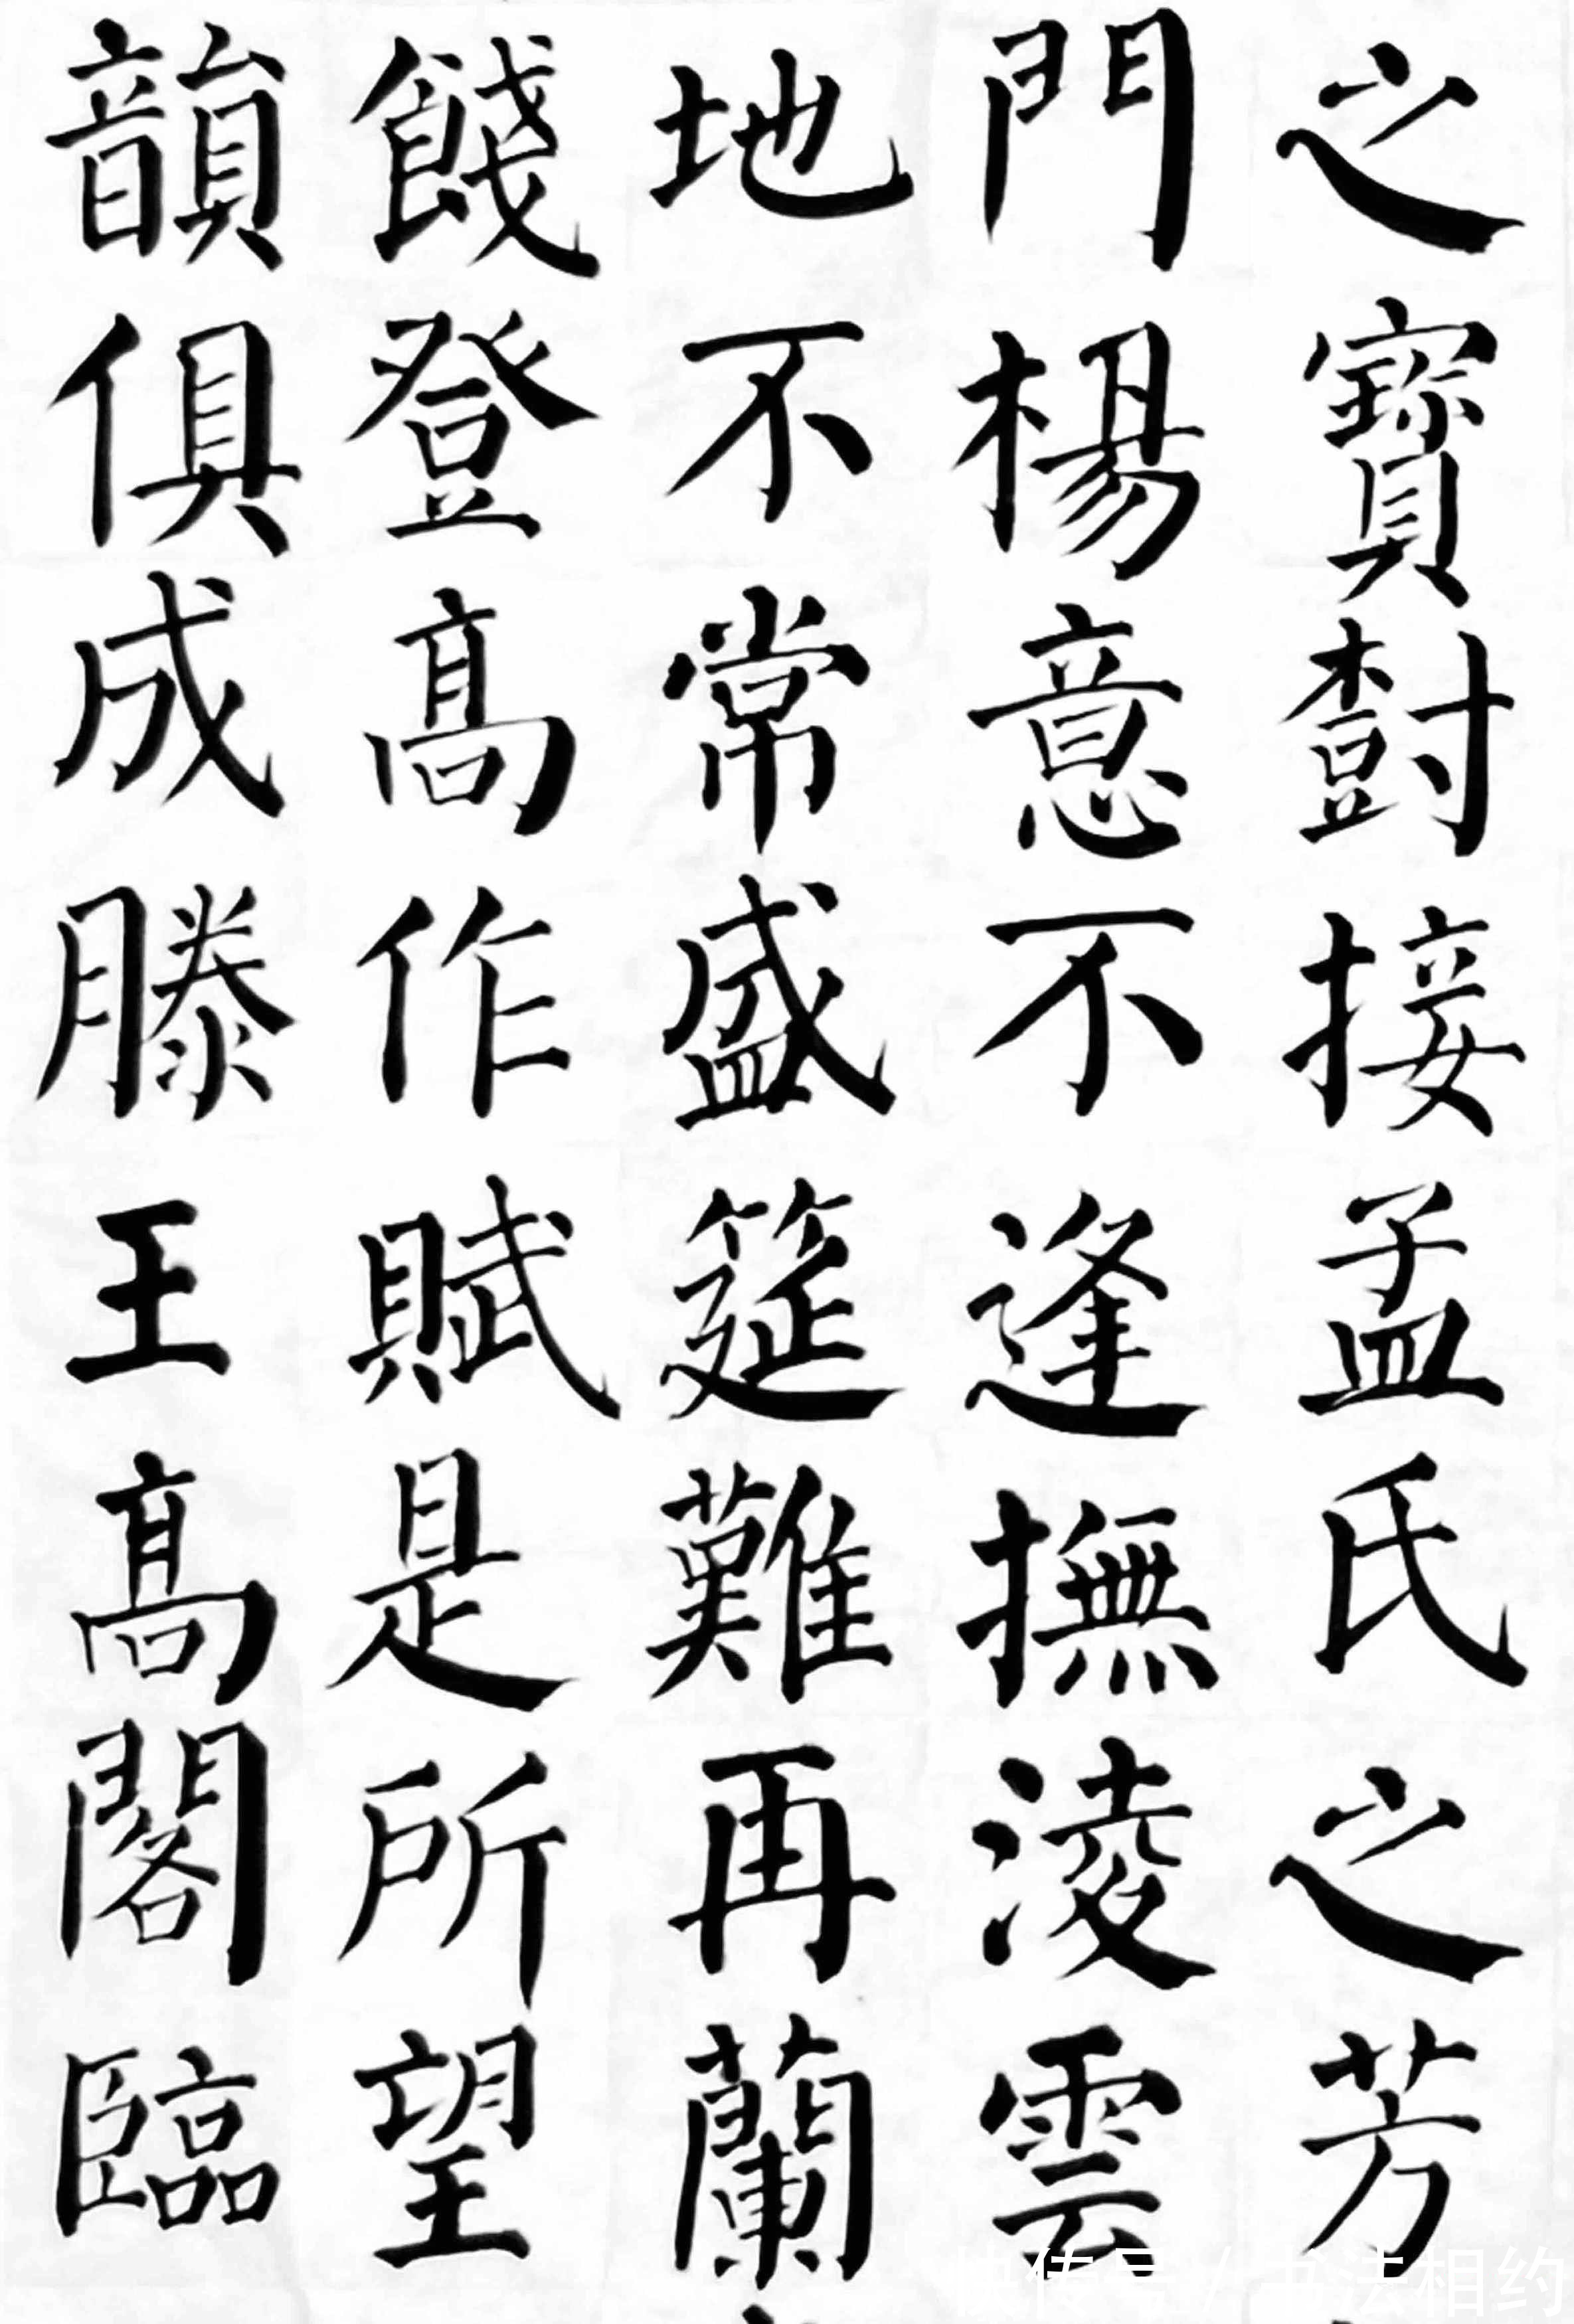 之寶樹接孟氏之芳
門楊意不逢撫淩雲
地不常盛筵難再蘭
餞登高作賦是所望
韻俱成滕王高閣臨
书法相约